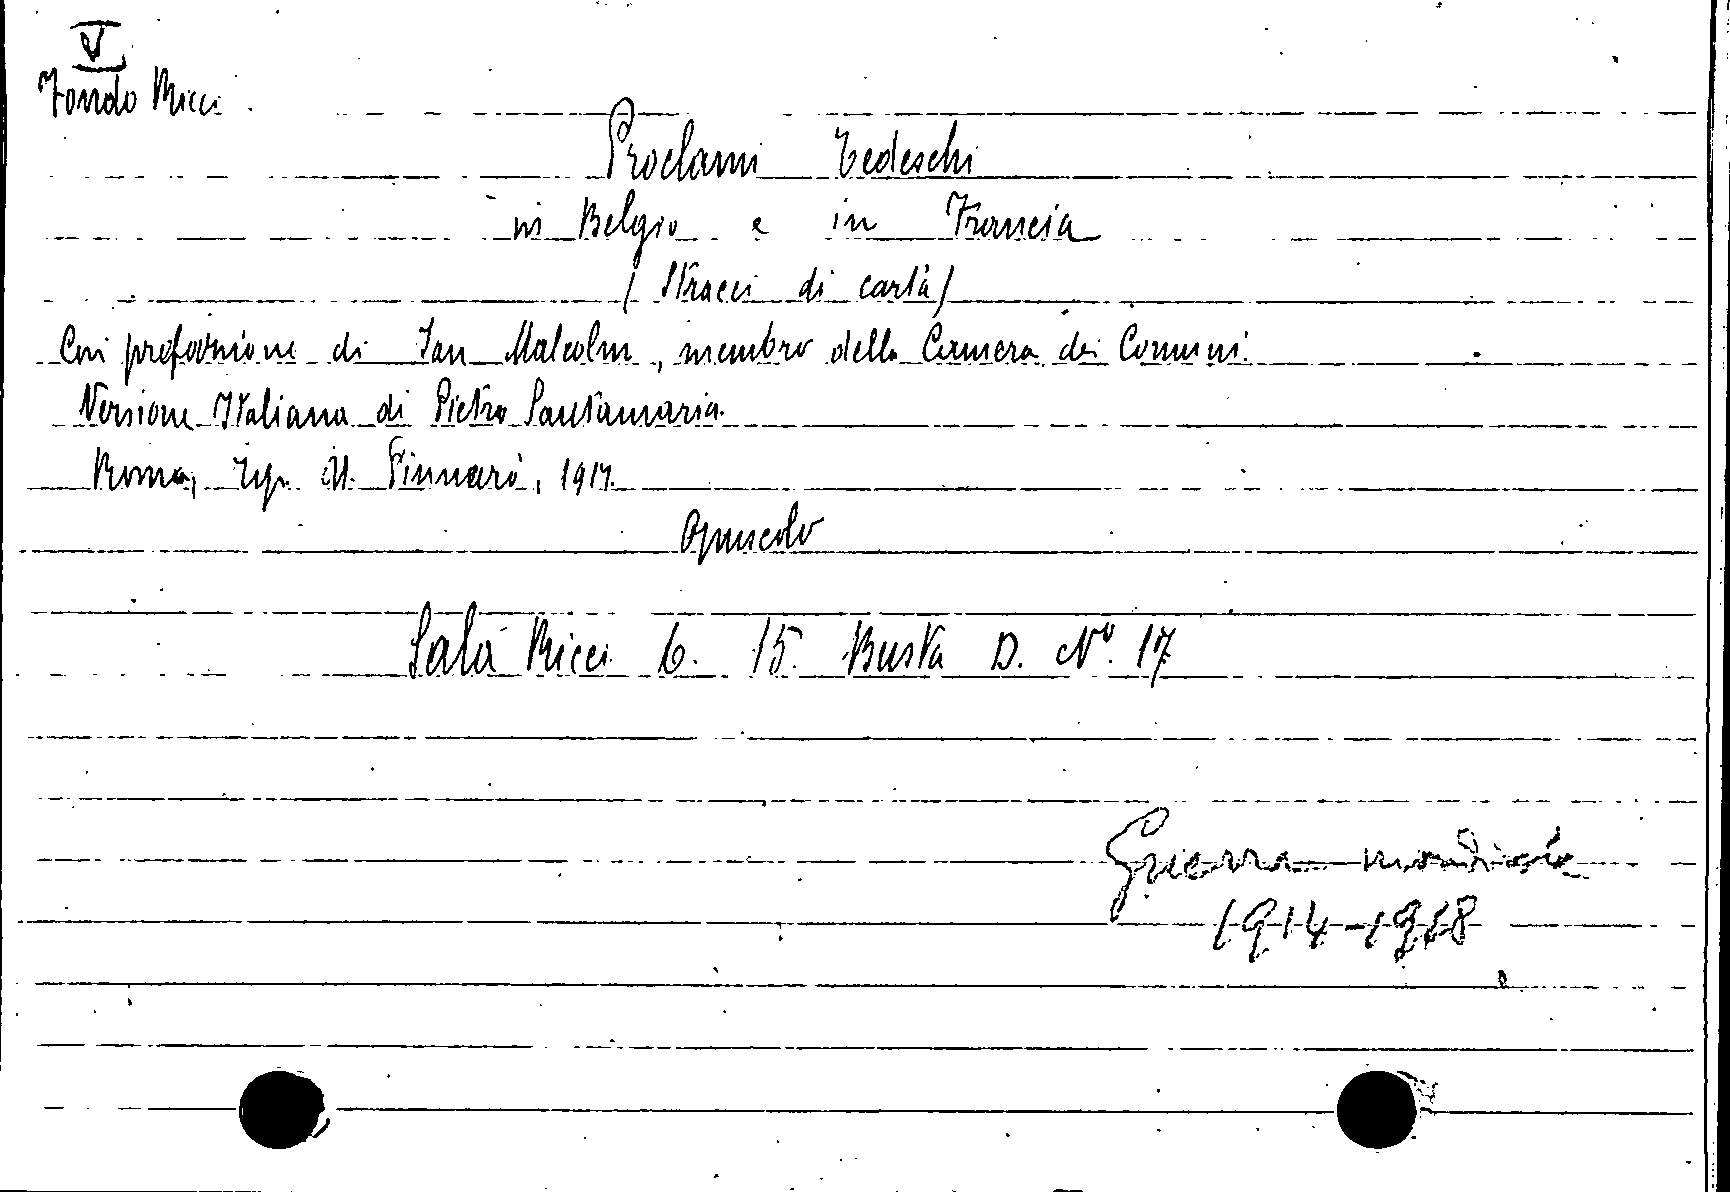 V
Fondo Ricci
Proclami Tedeschi
in Belgio e in Francia
(Stracci di carta)
Con prefazione di Ian Malcolm, membro della Camera dei Comuni.
Versione Italiana di Pietro Santamaria.
Roma, Tip. U. Pinnarò, 1917.
Opuscolo
Sala Ricci 6. 15. Busta D. N° 17
Guerra mondiale
1914-1918